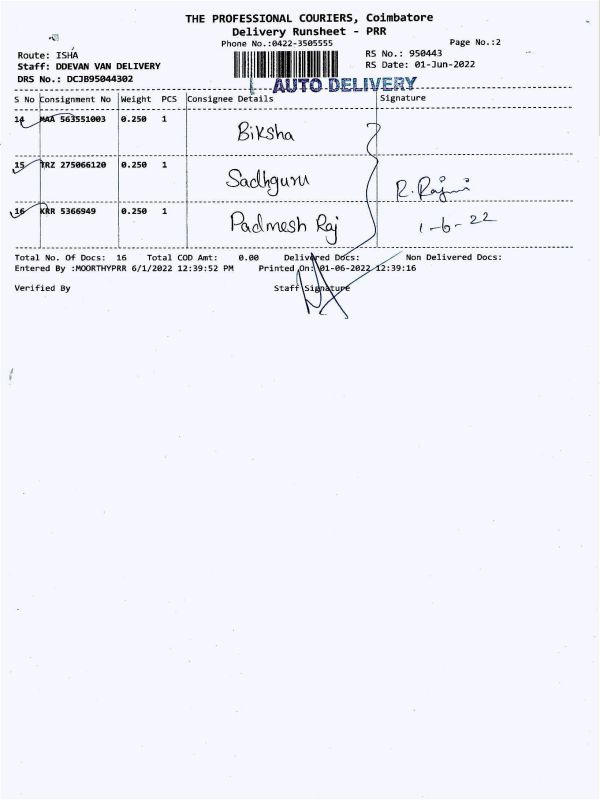 THE PROFESSIONAL COURIERS, Coimbatore
Delivery Runsheet - PRR
Phone No.:0422-3505555
Page No.:2
Route: ISHA
RS No.: 950443
Staff: DDEVAN VAN DELIVERY
RS Date: 01-Jun-2022
DRS No.: DCJB95044302
AUTO DELIVERY
S No Consignment No Weight PCS Consignee Details Signature
14 MAA 563551003 0.250 1 Biksha
15 TRZ 275066120 0.250 1 Sadhguru R. Rajini
16 KRR 5366949 0.250 1 Padmesh Raj 1-6-22
Total No. Of Docs: 16 Total COD Amt: 0.00 Delivered Docs: Non Delivered Docs:
Entered By :MOORTHYPRR 6/1/2022 12:39:52 PM Printed On: 01-06-2022 12:39:16
Verified By Staff Signature